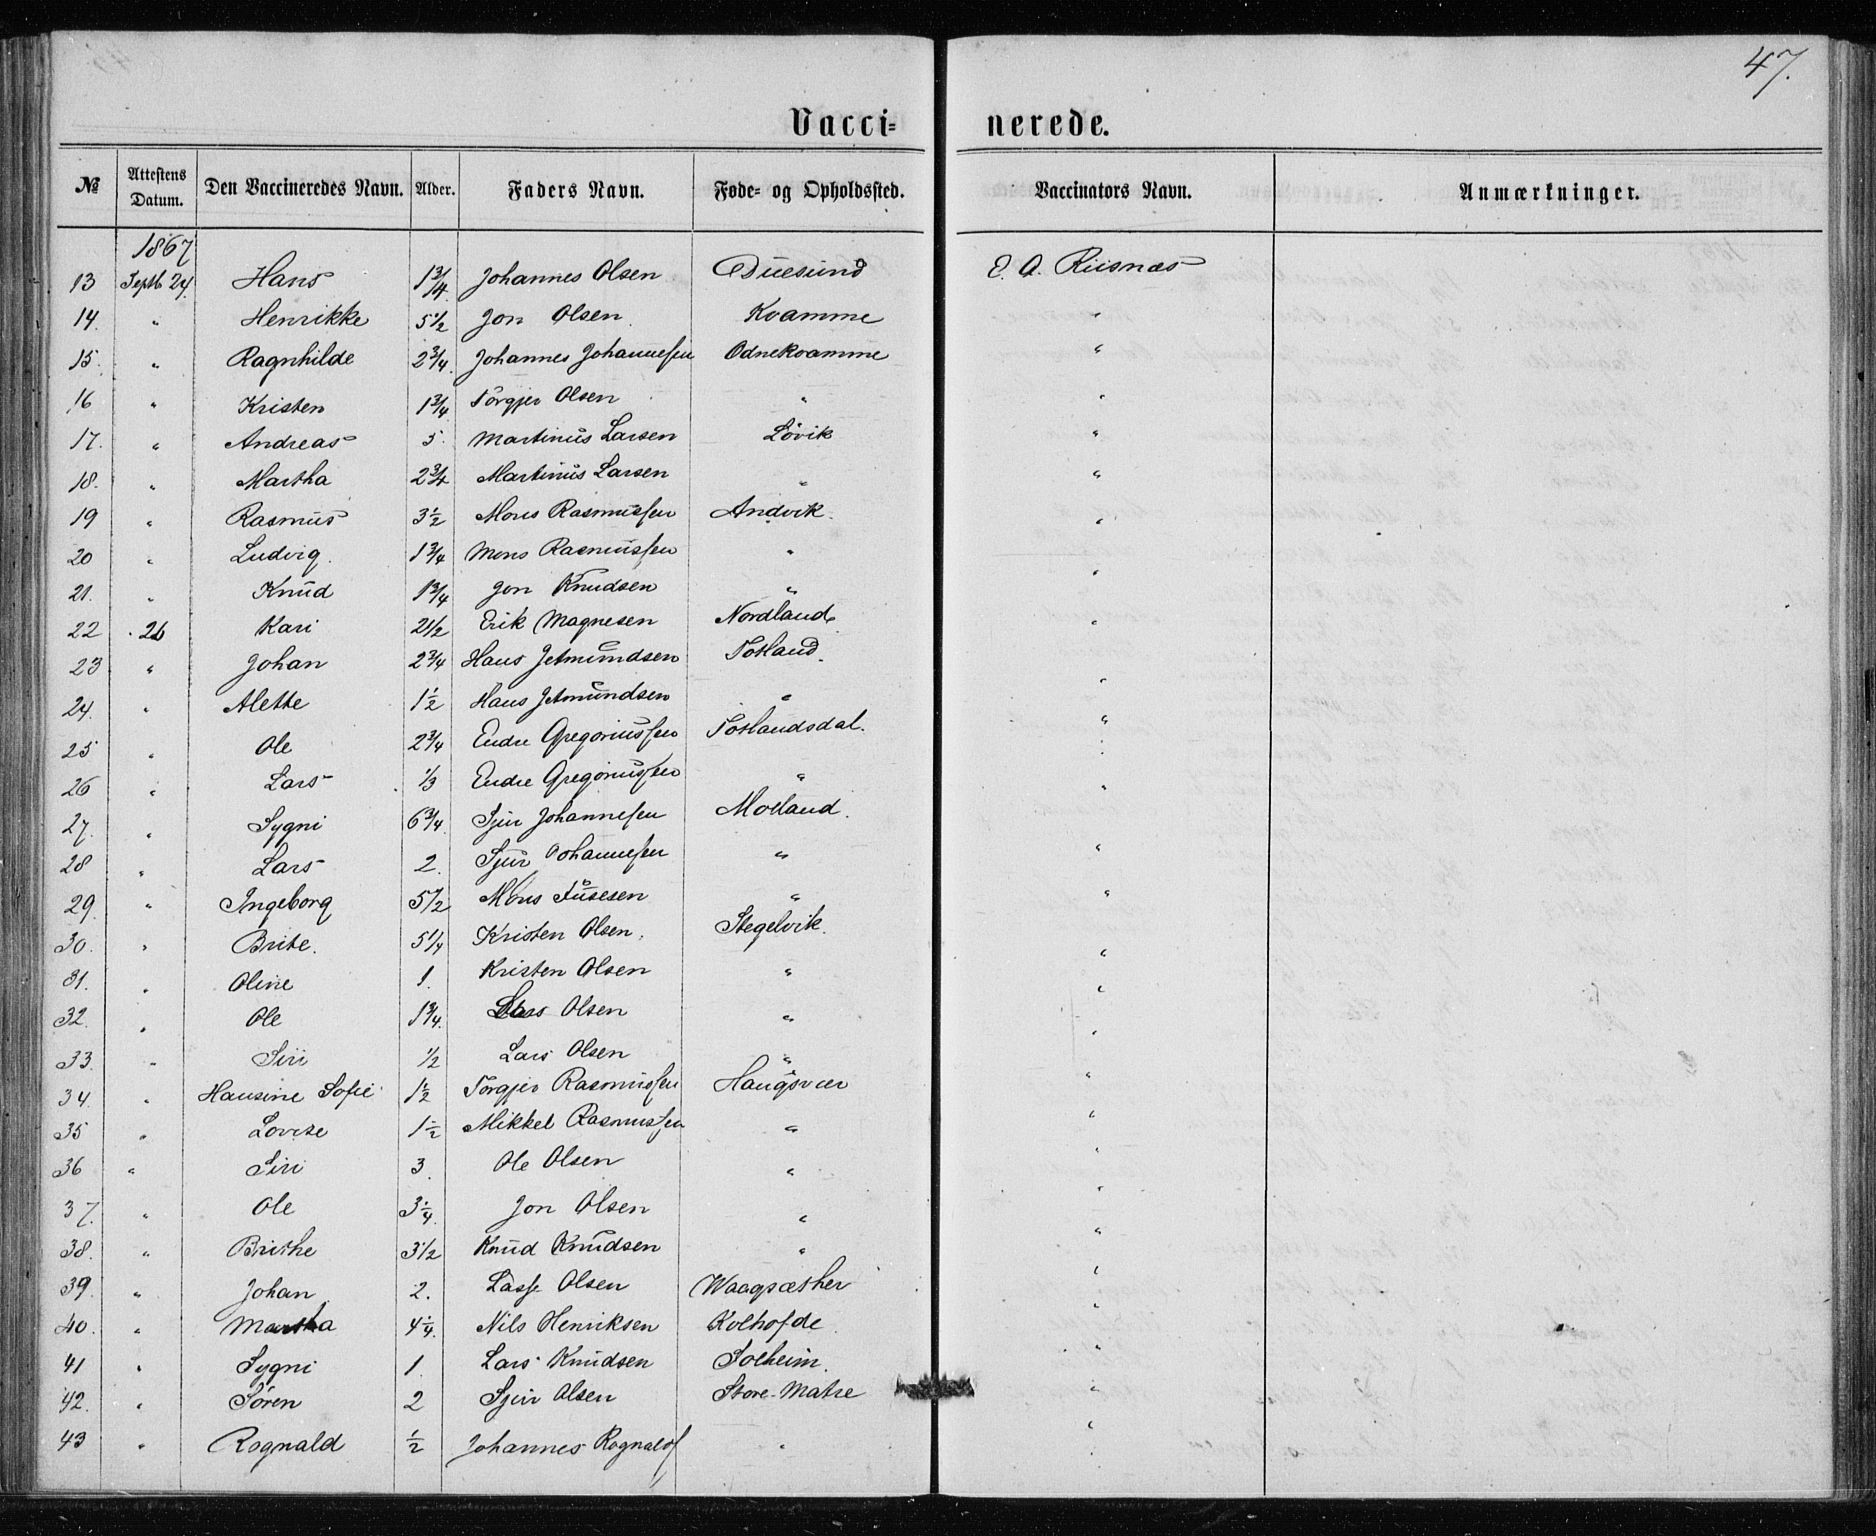 47.
Vaccinerede.
№ | Attestens Datum. | Den Vaccineredes Navn. | Alder. | Faders Navn. | Føde- og Opholdssted. | Vaccinators Navn. | Anmærkninger.
1867
13 | Septb 24. | Hans | 1 3/4 | Johannes Olsen | Duesund | E. A. Riisnæs
14. | " | Henrikke | 5 1/2 | Jon Olsen | Kvamme | "
15. | " | Ragnhilde | 2 3/4. | Johannes Johannesen | Odnekvamme | "
16 | " | Kristen | 1 3/4 | Törgjer Olsen | " | "
17. | " | Andreas | 5. | Martinus Larsen | Lövik | "
18. | " | Martha | 2 3/4 | Martinus Larsen | " | "
19 | " | Rasmus | 3 1/2 | Mons Rasmussen | Andvik. | "
20 | " | Ludvig. | 1 3/4 | Mons Rasmussen | "
21. | " | Knud | 1 3/4 | Jon Knudsen | " | "
22 | . 26 | Kari | 2 1/2 | Erik Magnesen | Nordland. | "
23 | " | Johan | 2 3/4 | Hans Jetmundsen | Totland.
24. | " | Alette | 1 1/2 | Hans Jetmundsen | " | "
25 | " | Ole | 2 3/4 | Endre Gregoriussen | Totlandsdal. | "
26 | " | Lars | 1/3 | Endre Gregoriussen | " | "
27. | " | Sygni | 6 3/4. | Sjur Johannesen | Moland.
28 | " | Lars | 2. | Sjur Johannesen | " | "
29. | " | Ingeborg | 5 1/2 | Mons Tusesen | " | "
30. | " | Brite. | 5 1/4 | Kristen Olsen. | Stegelvik. | "
31. | " | Oline | 1. | Kristen Olsen | " | "
32. | " | Ole | 1 3/4. | Lars Olsen | " | "
33. | " | Siri | 1/2 | Lars Olsen | " | "
34. | " | Hansine Sofie | 1 1/2 | Torgjer Rasmussen | Haugsvær | "
35 | " | Lovise | 1 1/2 | Mikkel Rasmussen | " | "
36 | " | Siri | 3. | Ole Olsen | " | "
37. | " | Ole | 3 1/4. | Jon Olsen | " | "
38. | " | Brithe | 3 1/2 | Knud Knudsen | " | "
39. | " | Johan | 2. | Lasse Olsen | Waagsæther | "
40. | " | Martha | 4 1/4. | Nils Henriksen | Kolhofde. | "
41 | " | Sygni | 1. | Lars Knudsen | Solheim. | "
42. | " | Sören | 2 | Sjur Olsen | Store-Matre | "
43 | " | Rognald | 1/2 | Johannes Rognalds | " | "